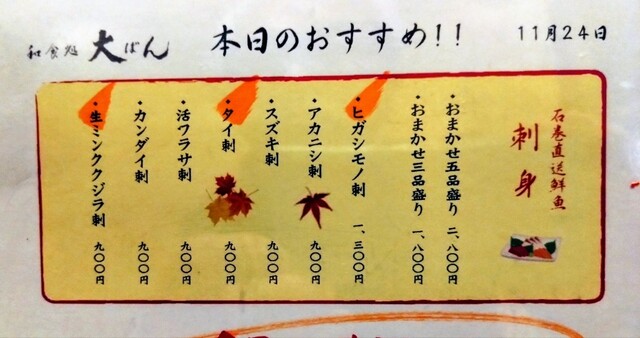 和食処 大ばん
本日のおすすめ!!
11月24日
石巻直送鮮魚
刺身
・おまかせ五品盛り 二、八〇〇円
・おまかせ三品盛り 一、八〇〇円
・ヒガシモノ刺 一、三〇〇円
・アカニシ刺 九〇〇円
・スズキ刺 九〇〇円
・タイ刺 九〇〇円
・活フラサ刺 九〇〇円
・カンダイ刺 九〇〇円
・生ミンククジラ刺 九〇〇円